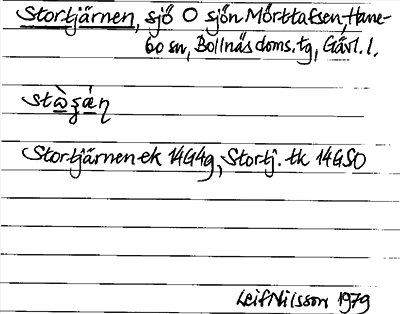 Stortjärnen, sjö O sjön Mörttaksen, Hane-
bo sn, Bollnäs doms. tg, Gävl. l.
Stortjärnen ek 14G4g, Stortj. tk 14GSO
Leif Nilsson 1979